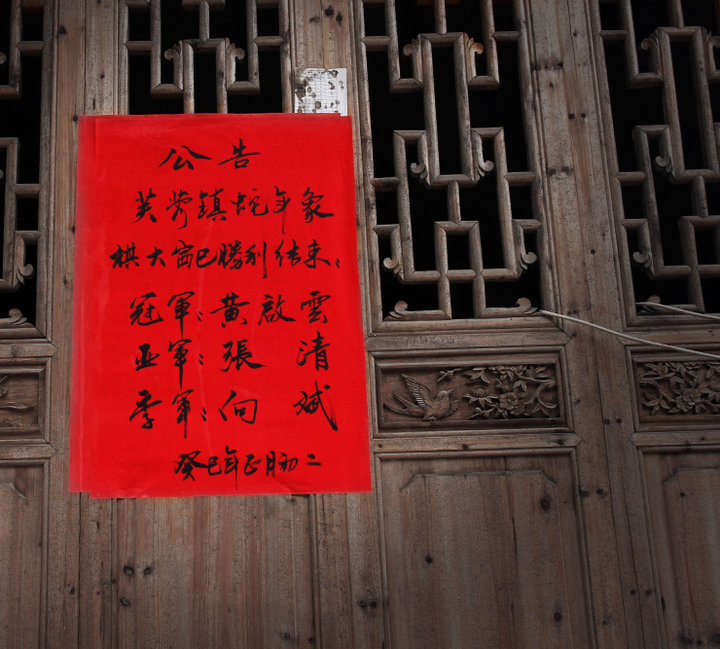 公告
芙蓉鎮蛇年象
棋大赛已勝利结束:
冠軍:黃啟雲
亚軍:張清
季軍:向斌
癸巳年正月初二